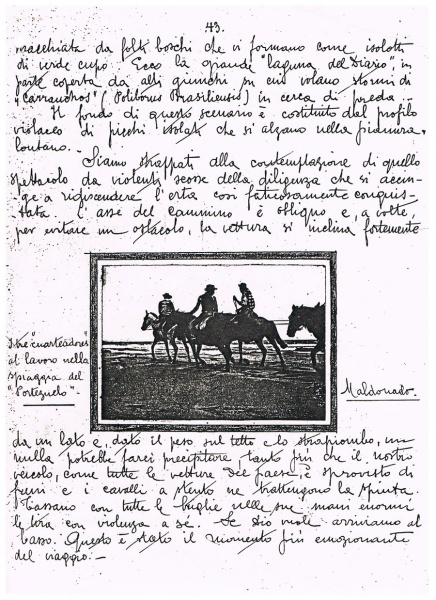 43.
macchiata da folti boschi che vi formano come isolotti
di verde cupo. Ecco la grande "laguna del Diario", in
parte coperta da alti giunchi su cui volano stormi di
"carranchos" (Poliborus Brasiliensis) in cerca di preda.
Il fondo di questo scenario è costituito dal profilo
violaceo di picchi isolati che si alzano nella pianura
lontano.
Siamo strappati alla contemplazione di quello
spettacolo da violenti scosse della diligenza che si accin-
ge a ridiscendere l'erta così faticosamente conquis-
tata. L'asse del cammino è obliquo e, a volte,
per evitare un ostacolo, la vettura si inclina fortemente
Tre "cuarteadores"
al lavoro nella
spiaggia del
"Portezuelo".
Maldonado.
da un lato e, dato il peso sul tetto e lo strapiombo, un
nulla potrebbe farci precipitare tanto più che il nostro
veicolo, come tutte le vetture del paese, è sprovisto di
freni e i cavalli a stento ne trattengono la spinta.
Gaetano con tutte le briglie nelle sue mani enormi
le tira con violenza a sé. Se Dio vuole arriviamo al
basso. Questo è stato il momento più emozionante
del viaggio.-